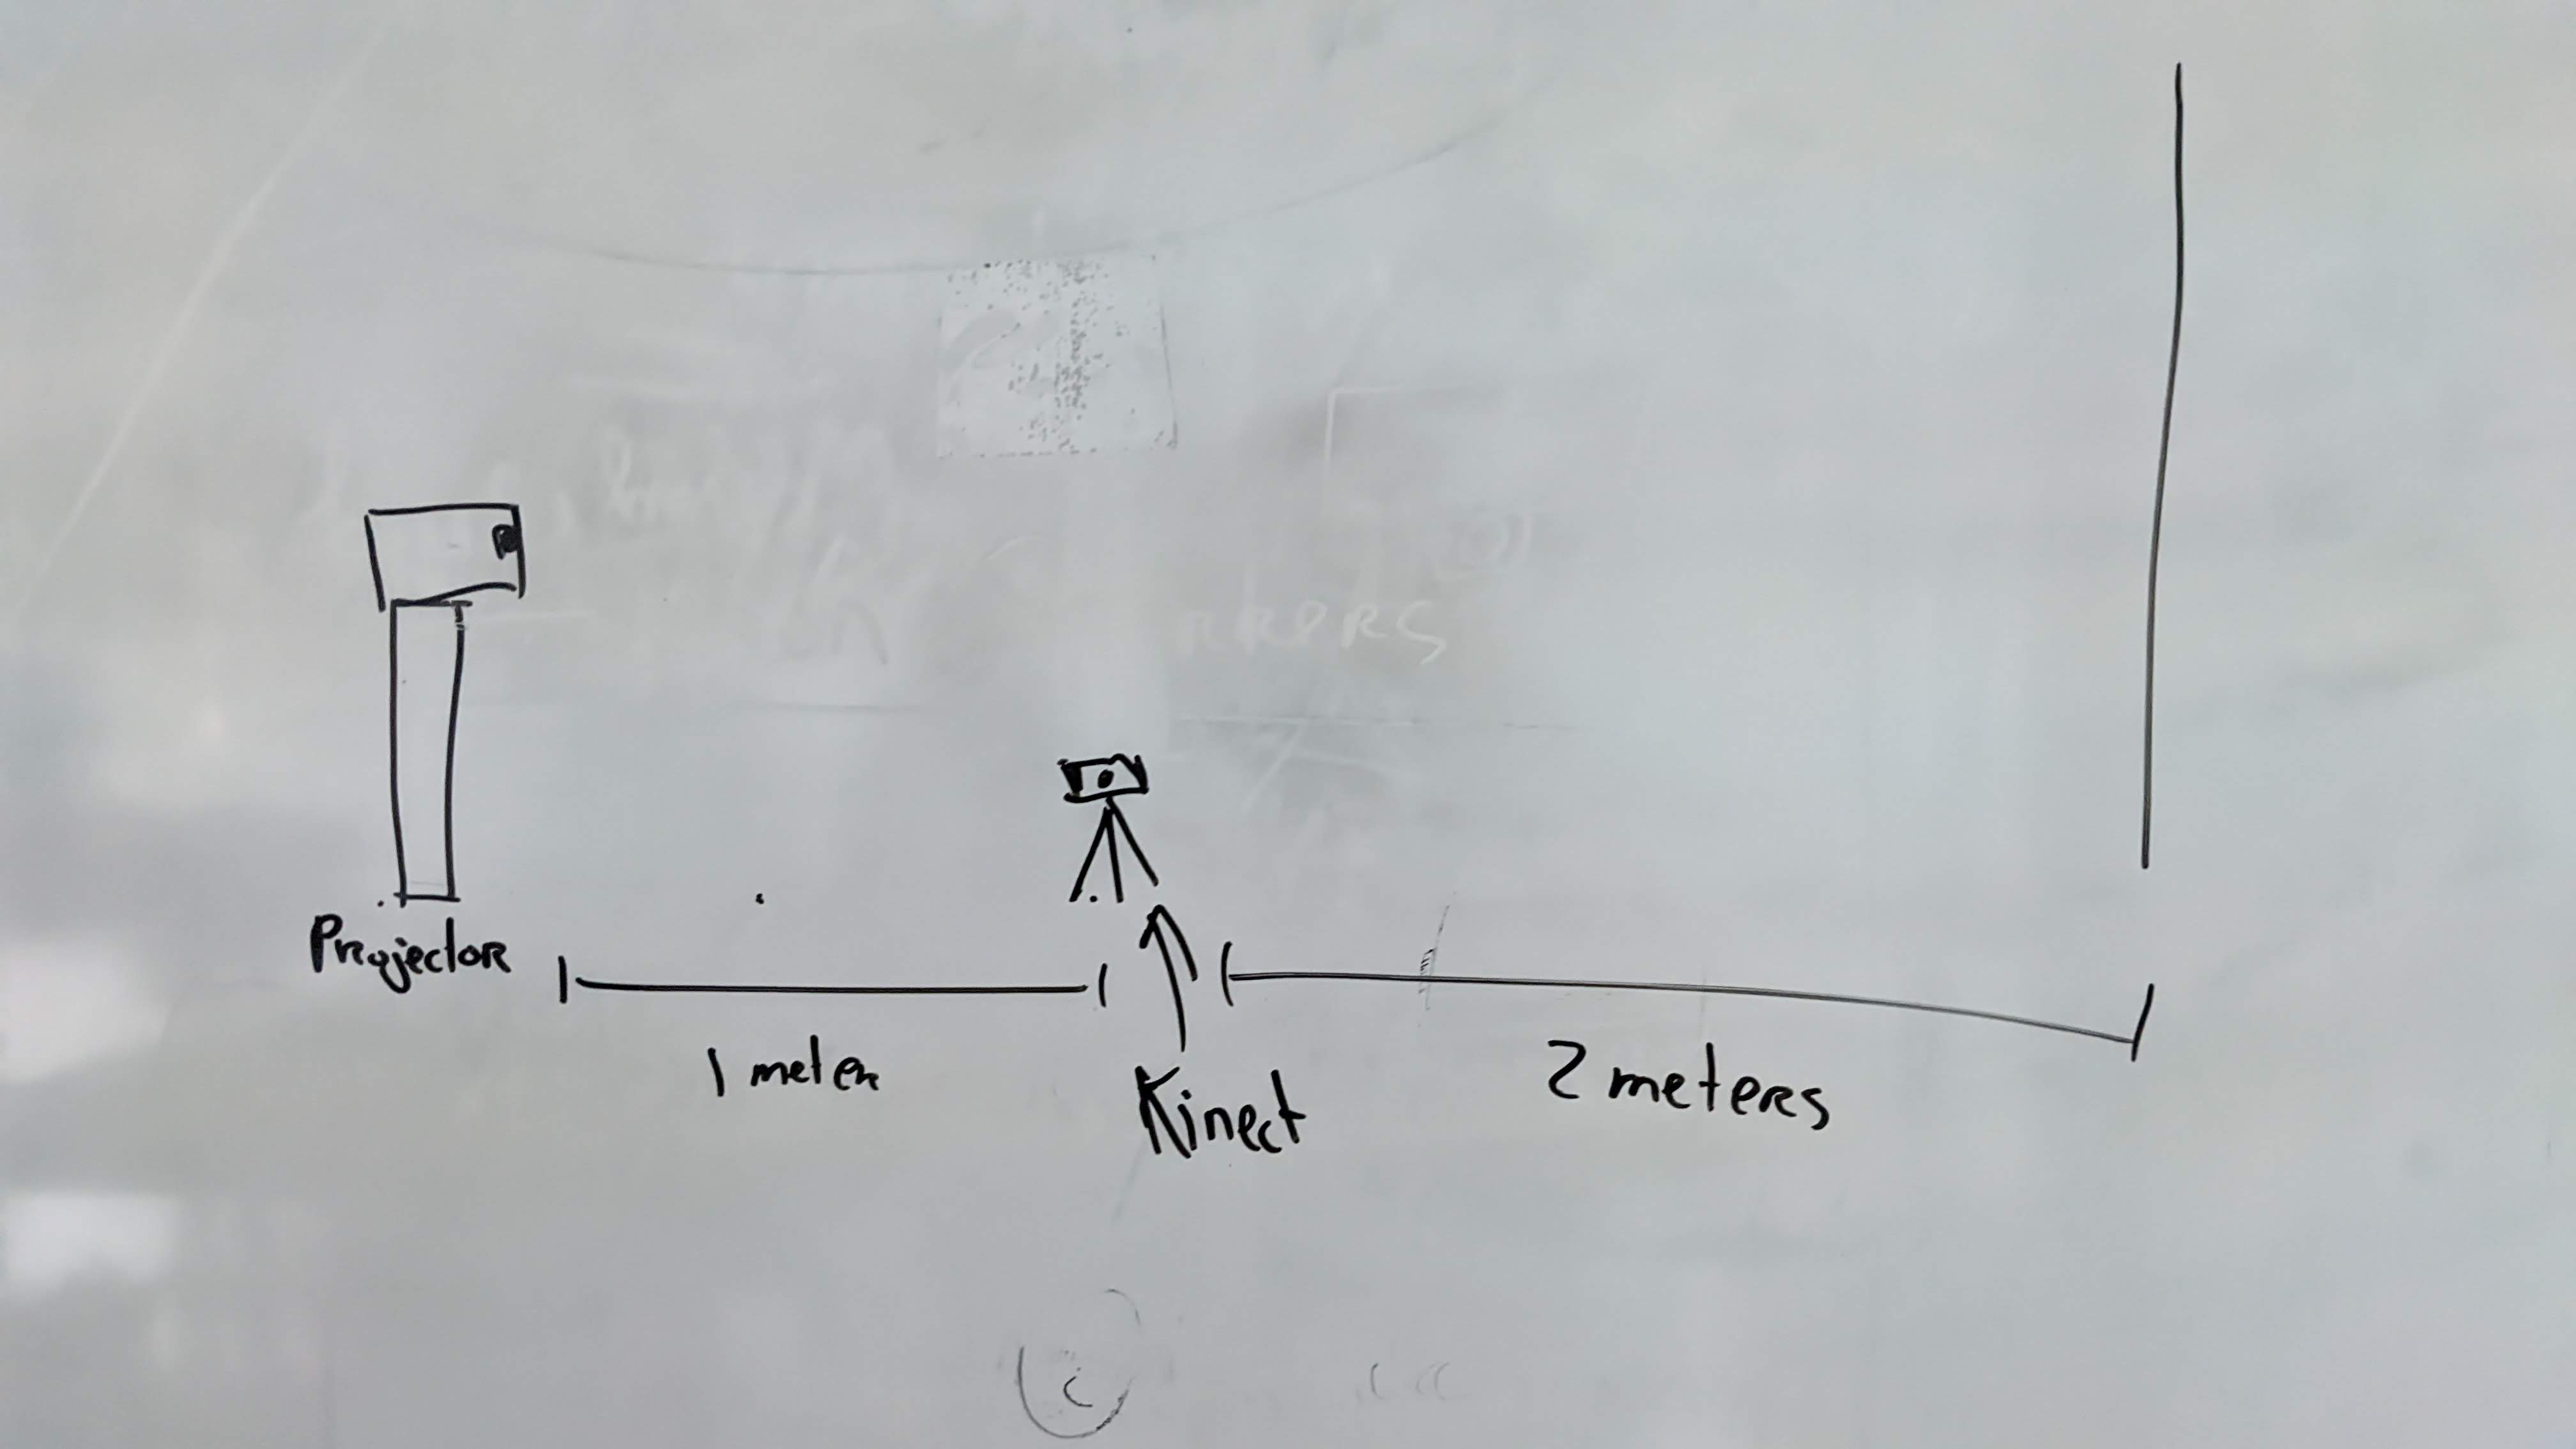 Projector
1 meter
Kinect
2 meters